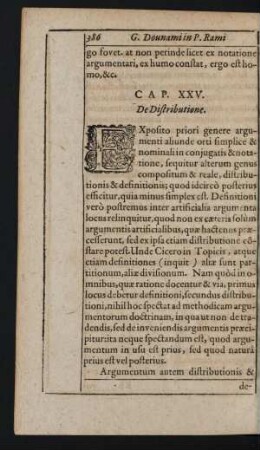 386 G. Dounami in P. Rami
go fovet. at non perinde licet ex notatione
argumentari, ex humo constat, ergo est ho-
mo, &c.
CAP. XXV.
De Distributione.
EXposito priori genere argu-
menti aliunde orti simplice &
nominali in conjugatis & nota-
tione, sequitur alterum genus
compositum & reale, distribu-
tionis & definitionis; quod idcircò posterius
efficitur, quia minus simplex est. Definitioni
verò postremus inter artificialia argumenta
locus relinquitur, quod non ex cæteris solùm
argumentis artificialibus, quæ hactenus præ-
cesserunt, sed ex ipsa etiam distributione cō-
stare potest. Unde Cicero in Topicis, atque
etiam definitiones (inquit) aliæ sunt par-
titionum, aliæ divisionum. Nam quòd in o-
mnibus, quæ ratione docentur & via, primus
locus debetur definitioni, secundus distribu-
tioni, nihil hoc spectat ad methodicam argu-
mentorum doctrinam, in qua ut non de tra-
dendis, sed de inveniendis argumentis præci-
pitur ita neque spectandum est, quod argu-
mentum in usu est prius, sed quod naturâ
prius est vel posterius.
Argumentum autem distributionis &
de-